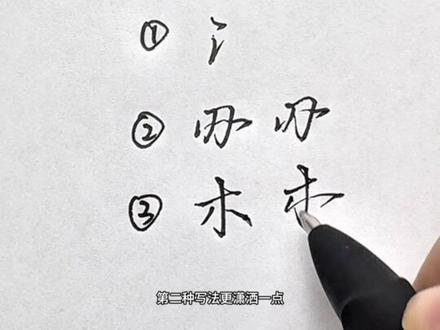 ① 氵
② 刅 刅
③ 木 木
第二种写法更潇洒一点